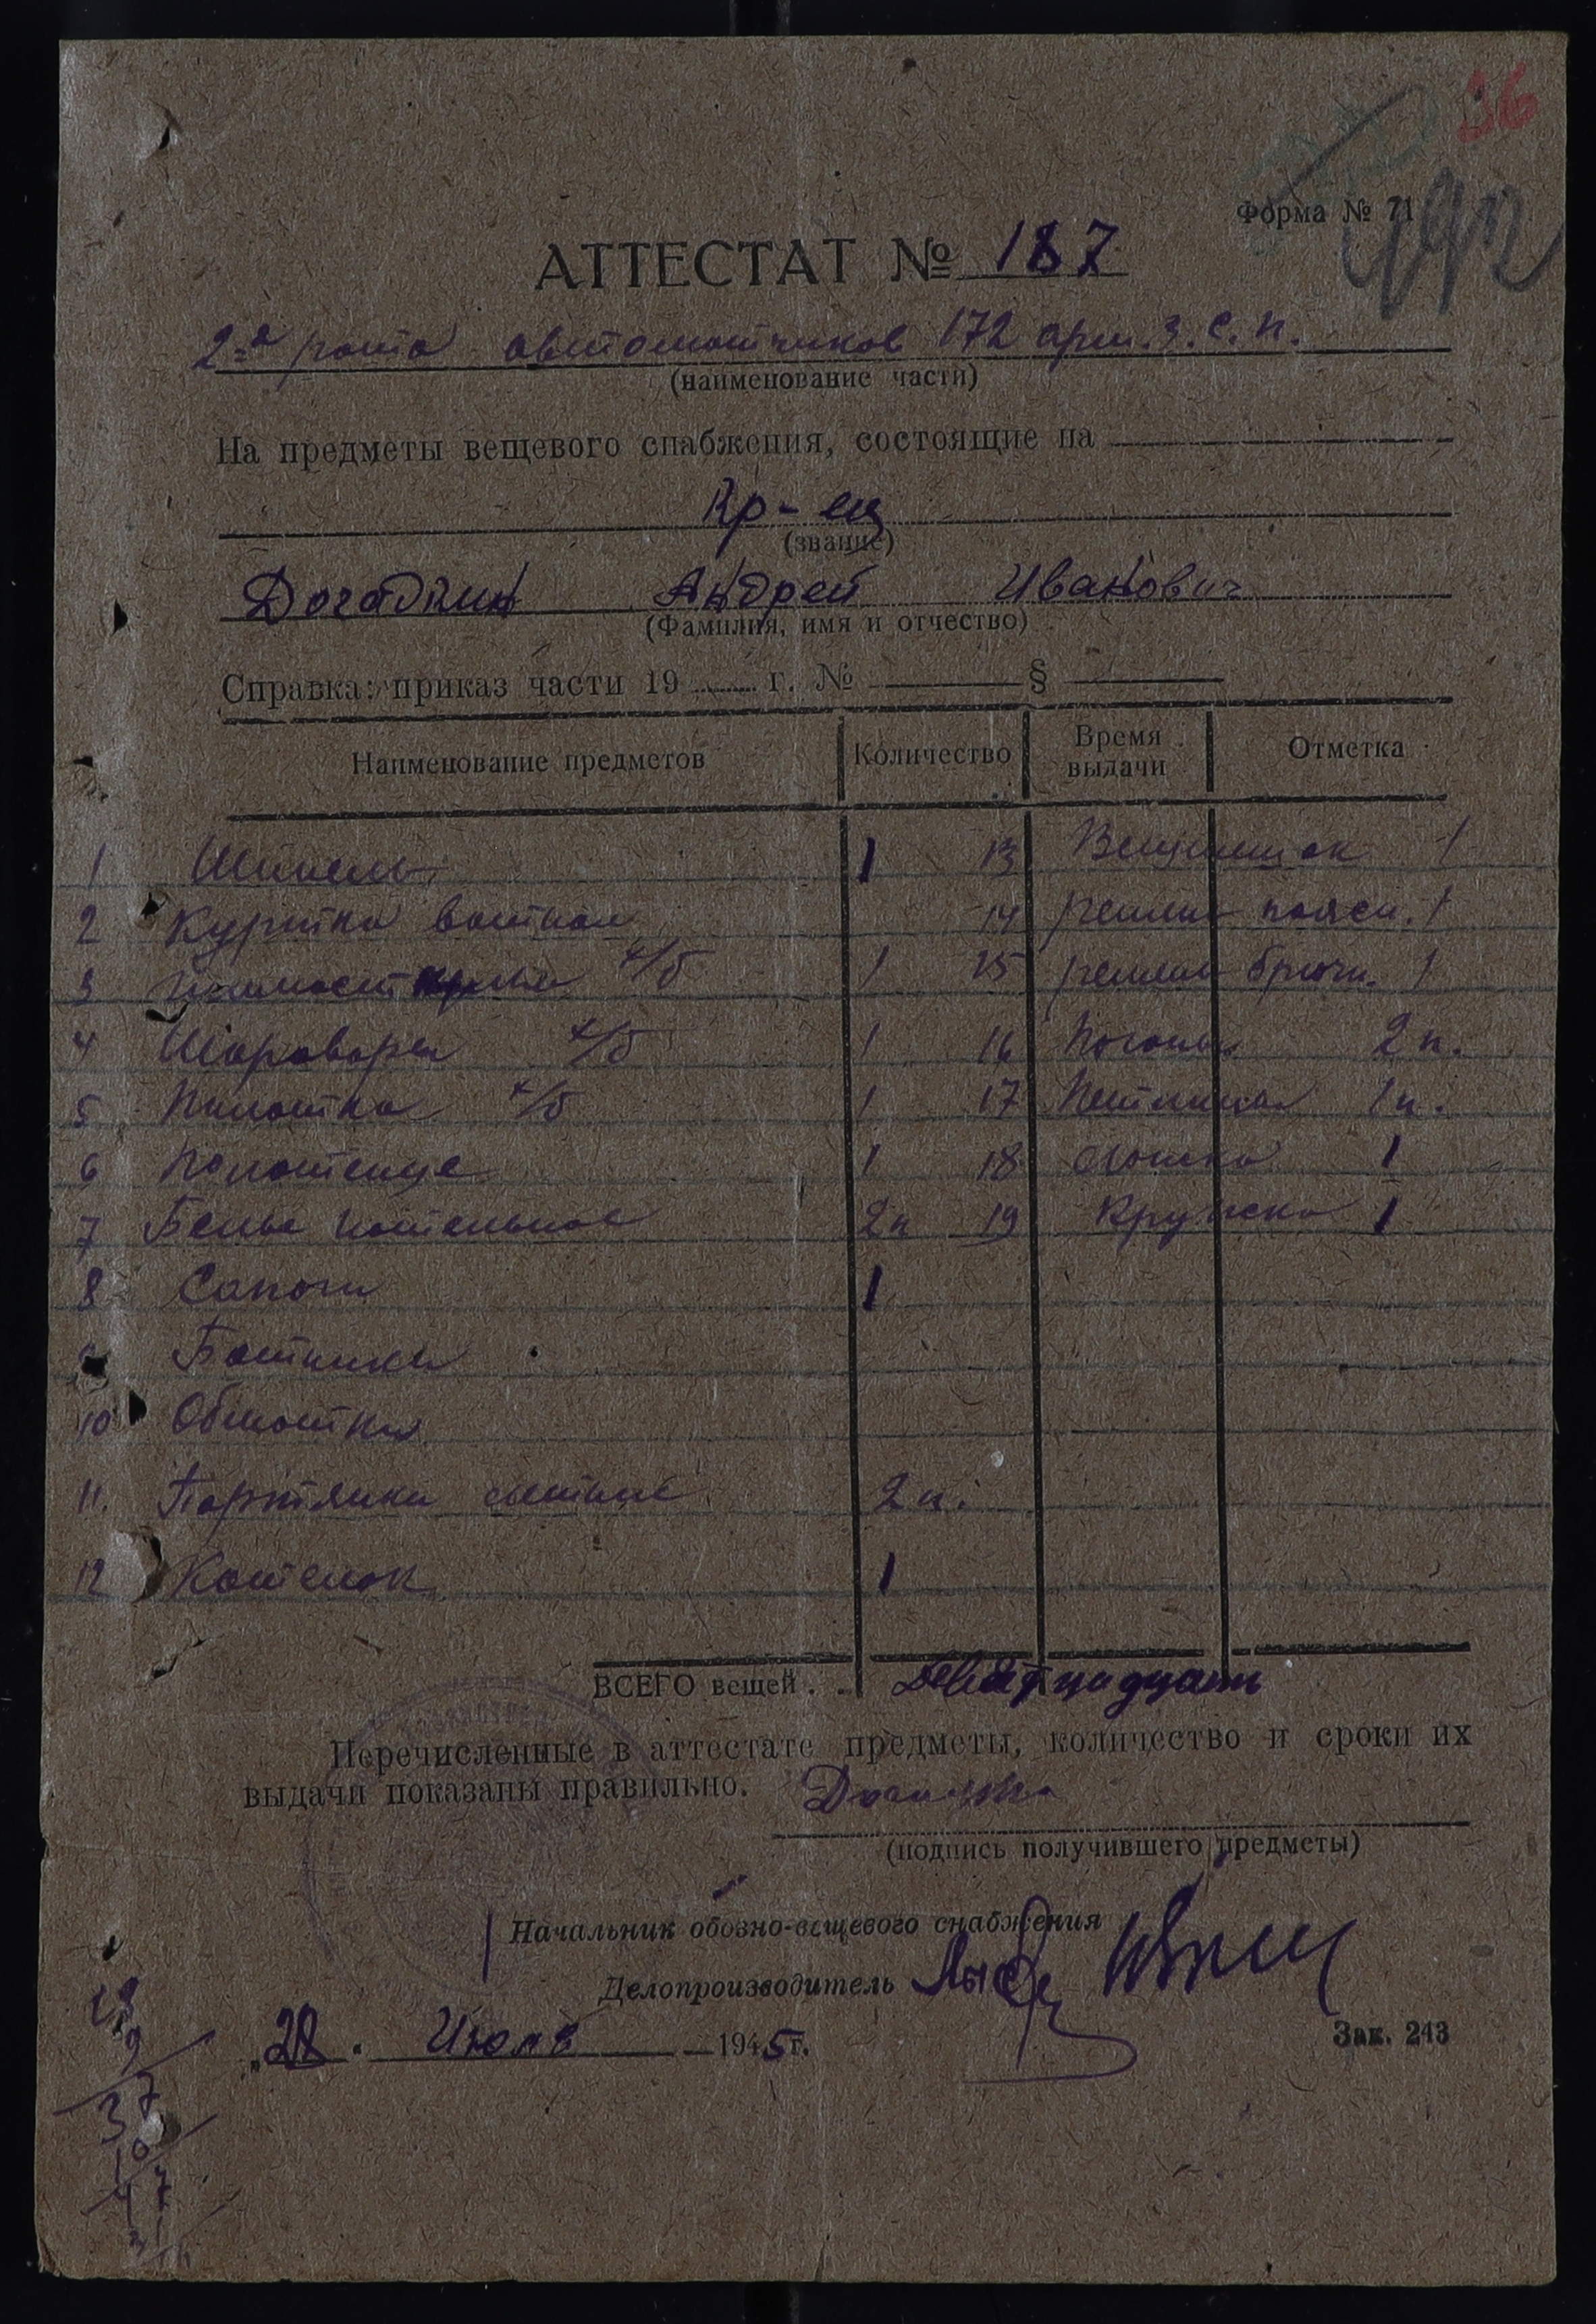 36
Форма № 71
АТТЕСТАТ № 187
2-я рота автоматчиков 172 арм. з. с. п.
(наименование части)
На предметы вещевого снабжения, состоящие на
Кр-ец
(звание)
Догадкин Андрей Иванович
(Фамилия, имя и отчество)
Справка: приказ части 19 г. № §
Наименование предметов Количество Время выдачи Отметка
1 Шинель 1 13 Вещмешок 1
2 Куртка ватная 14 ремень поясн. 1
3 х/б 1 15 ремень брючн. 1
4 Шаровары х/б 1 16 Погоны 2 п.
5 Пилотка х/б 1 17 Петлицы 1 п.
6 Полотенце 1 18 Ложка 1
7 Белье нательное 2 п 19 Кружка 1
8 Сапоги 1
9 Ботинки
10 Обмотки
11. Портянки летние 2 п.
12 Котелок 1
ВСЕГО вещей . . Девятнадцать
Перечисленные в аттестате предметы, количество и сроки их
выдачи показаны правильно.
(подпись получившего предметы)
Начальник обозно-вещевого снабжения
Делопроизводитель
„28“ Июля 1945 г.
Зак. 243